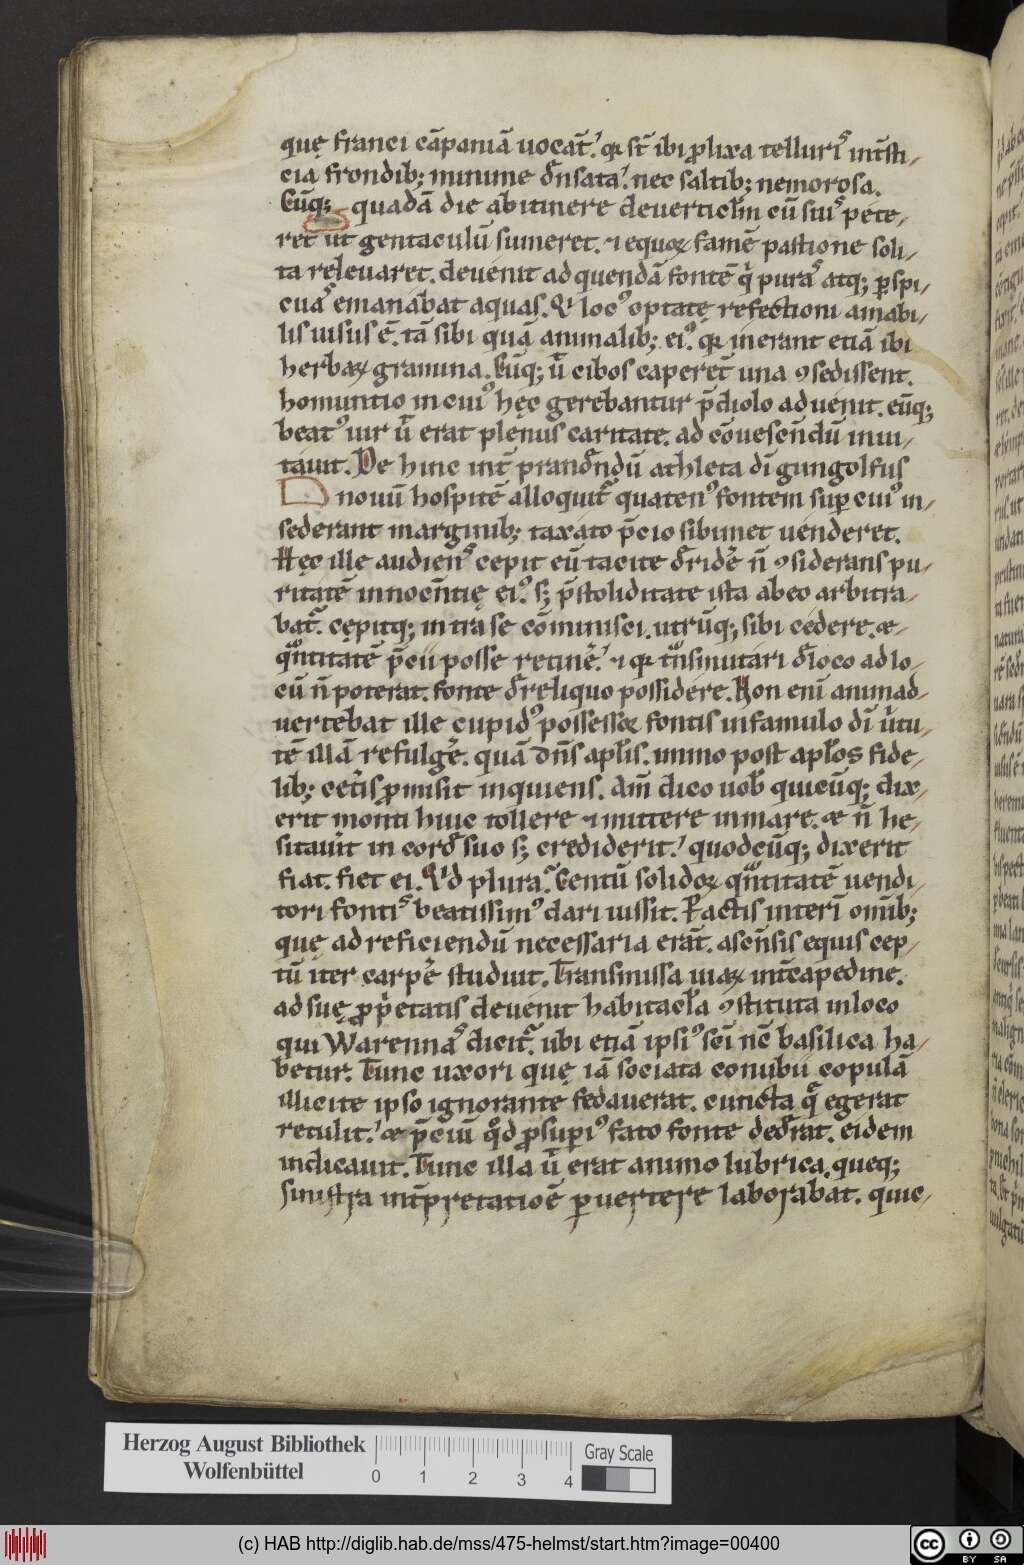 quę franci cāpaniā uocāt. qꝛ st̄ ibi ꝓlixa telluriˀ int̄sti-
cia frondib; minime dn̄sata. nec saltib; nemorosa.
Cūq; quadā die ab itinere deuerticlm̄ cū suiˀ pete-
ret ut gentaculū sumeret. ⁊ equoꝝ famē pastione soli-
ta releuaret. deuenit ad quendā fontē q̇ puraˀ atq; ꝑspi-
cuaˀ emanabat aquas. Qͥ locˀ optatę refectioni amabi-
lis uisus ē. tā sibi quā animalib; eiˀ. qꝛ inerant etiā ibi
herbaꝝ gramina. Cūq; ū cibos caperēt una ꝯsedissent.
homuntio in cuiˀ hęc gerebantur p̄diolo aduenit. eūq;
beatˀ uir ū erat plenus caritate. ad cōuescendū inui-
tauit. De hinc int̄ prandendū athleta dī gungolfus
nouū hospitē alloquit̄ quatenˀ fontem suꝑ cuiˀ in-
sederant marginib; taxato p̄cio sibimet uenderet.
Hęc ille audienˀ cepit eū tacite d̄ridē n̄ ꝯsiderans pu-
ritatē innocentię eiˀ. s; p̄ stoliditate ista ab eo arbitra-
bat̄. cępitq; intra se cōminisci. utrūq; sibi cedere. æ
q̊ntitatē p̄cii posse retinē. ⁊ qꝛ tn̄smutari d̄ loco ad lo-
cū n̄ poterat. fonte d̄ reliquo possidere. Non enī animad-
uertebat ille cupidˀ possessoꝝ fontis in famulo dī ūtu-
tē illā refulgē. quā dn̄s aplīs. immo post aplōs fide-
lib; cet̄is ꝓmisit inquiens. Am̄ dico uob̄ quicūq; dix-
erit monti huic tollere ⁊ mittere in mare. æ n̄ he-
sitauit in cord̄ suo s; crediderit. quodcūq; dixerit
fiat. fiet ei. Qͥd pluraˀ. Centū solidoꝝ q̊ntitatē uendi-
tori fontiˀ beatissimˀ dari iussit. Factis interī omib;
quę ad reficiendū necessaria erāt. ascēsis equis cep-
tū iter carpē studuit. Transmissa uiaꝝ int̄capedine.
ad suę ꝓp̄etatis deuenit habitacl̄a ꝯstituta in loco
qui Warennaˀ dicit̄. ubi etiā ipsiˀ scī nc̄ basilica ha-
betur. Tunc uxori quę iā sociata conubii copulā
illicite ipso ignorante fedauerat. cuncta q̄ egerat
retulit. æ p̄cium q̊d ꝓ suꝑiˀ fato fonte ded̄rat. eidem
indicauit. Tunc illa ū erat animo lubrica. queq;
sinistra int̄pretatioē ꝑuertere laborabat. quic-
Herzog August Bibliothek
Wolfenbüttel
0 1 2 3 4
Gray Scale
(c) HAB http://diglib.hab.de/mss/475-helmst/start.htm?image=00400
cc BY SA